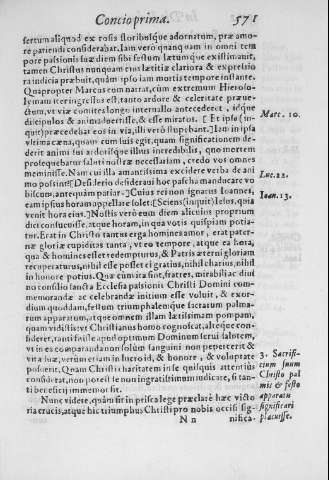 Concio prima. 571
sertum aliquod ex rosis floribusque adornatum, præ amo-
re patiendi considerabat. Iam verò quanquam in omni tem
pore passionis suæ diem sibi festum lætumque existimauit,
tamen Christus nunquam eius lætitiæ clariora & expressio
ra indicia præbuit, quàm ipso iam mortis tempore instante.
Quapropter Marcus eum narrat, cùm extremùm Hieroso-
lymam iter ingressus est, tanto ardore & celeritate præue-
ctum, vt viæ comites longo interuallo antecederet, idque
discipulos & animaduertisse, & esse miratos. [Et ipse (in-
quit) præcedebat eos in via, illi verò stupebant.] Iam in ipsa
vltima cæna, quam cum suis egit, quam significationem de-
derit animi sui ardorisque illius incredibilis, quo mortem
prosequebatur saluti nostræ necessariam, credo vos omnes
meminisse. Nam cui illa amantissima excidere verba de ani
mo possint? [Desiderio desideraui hoc pascha manducare vo
biscum, antequàm patiar.] Cuius rei non ignarus Ioannes,
eam ipsius horam appellare solet: [Sciens (inquit) Iesus, quia
venit hora eius.] Nostis verò eum diem alicuius proprium
dici consueuisse, atque horam, in qua votis quispiam potia-
tur. Erat in Christo tantus erga homines amor, erat pater-
næ gloriæ cupiditas tanta, vt eo tempore, atque ea hora,
qua & homines esset redempturus, & Patris æterni gloriam
recuperaturus, nihil esse posset ei gratius, nihil charius, nihil
in honore potius. Quæ cùm ita sint, fratres, mirabili ac diui
no consilio sancta Ecclesia passionis Christi Domini com-
memorandæ ac celebrandæ initium esse voluit, & exor-
dium quoddam, festum triumphalemque sacratum palma-
rum apparatum, atque omnem illam lætissimam pompam,
quam vidistis: vt Christianus homo cognoscat, altéque con-
sideret, tanti fuisse apud optimum Dominum serui salutem,
vt in ea comparanda non solùm sanguini non pepercerit &
vitæ suæ, verùm etiam in lucro id, & honore, & voluptate
posuerit. Quam Christi charitatem in se quisquis attentiùs
considerat, non potest se non ingratissimum iudicare, si tan-
ti beneficij immemor sit.
Nunc videte, quàm sit in prisca lege præclarè hæc victo
ria crucis, atque hic triumphus Christi pro nobis occisi sig-
N n nifica-
Marc. 10.
Luc. 22.
Ioan. 13.
3. Sacrifi-
cium suum
Christo pal
mis & festo
apparatu
significari
placuisse.